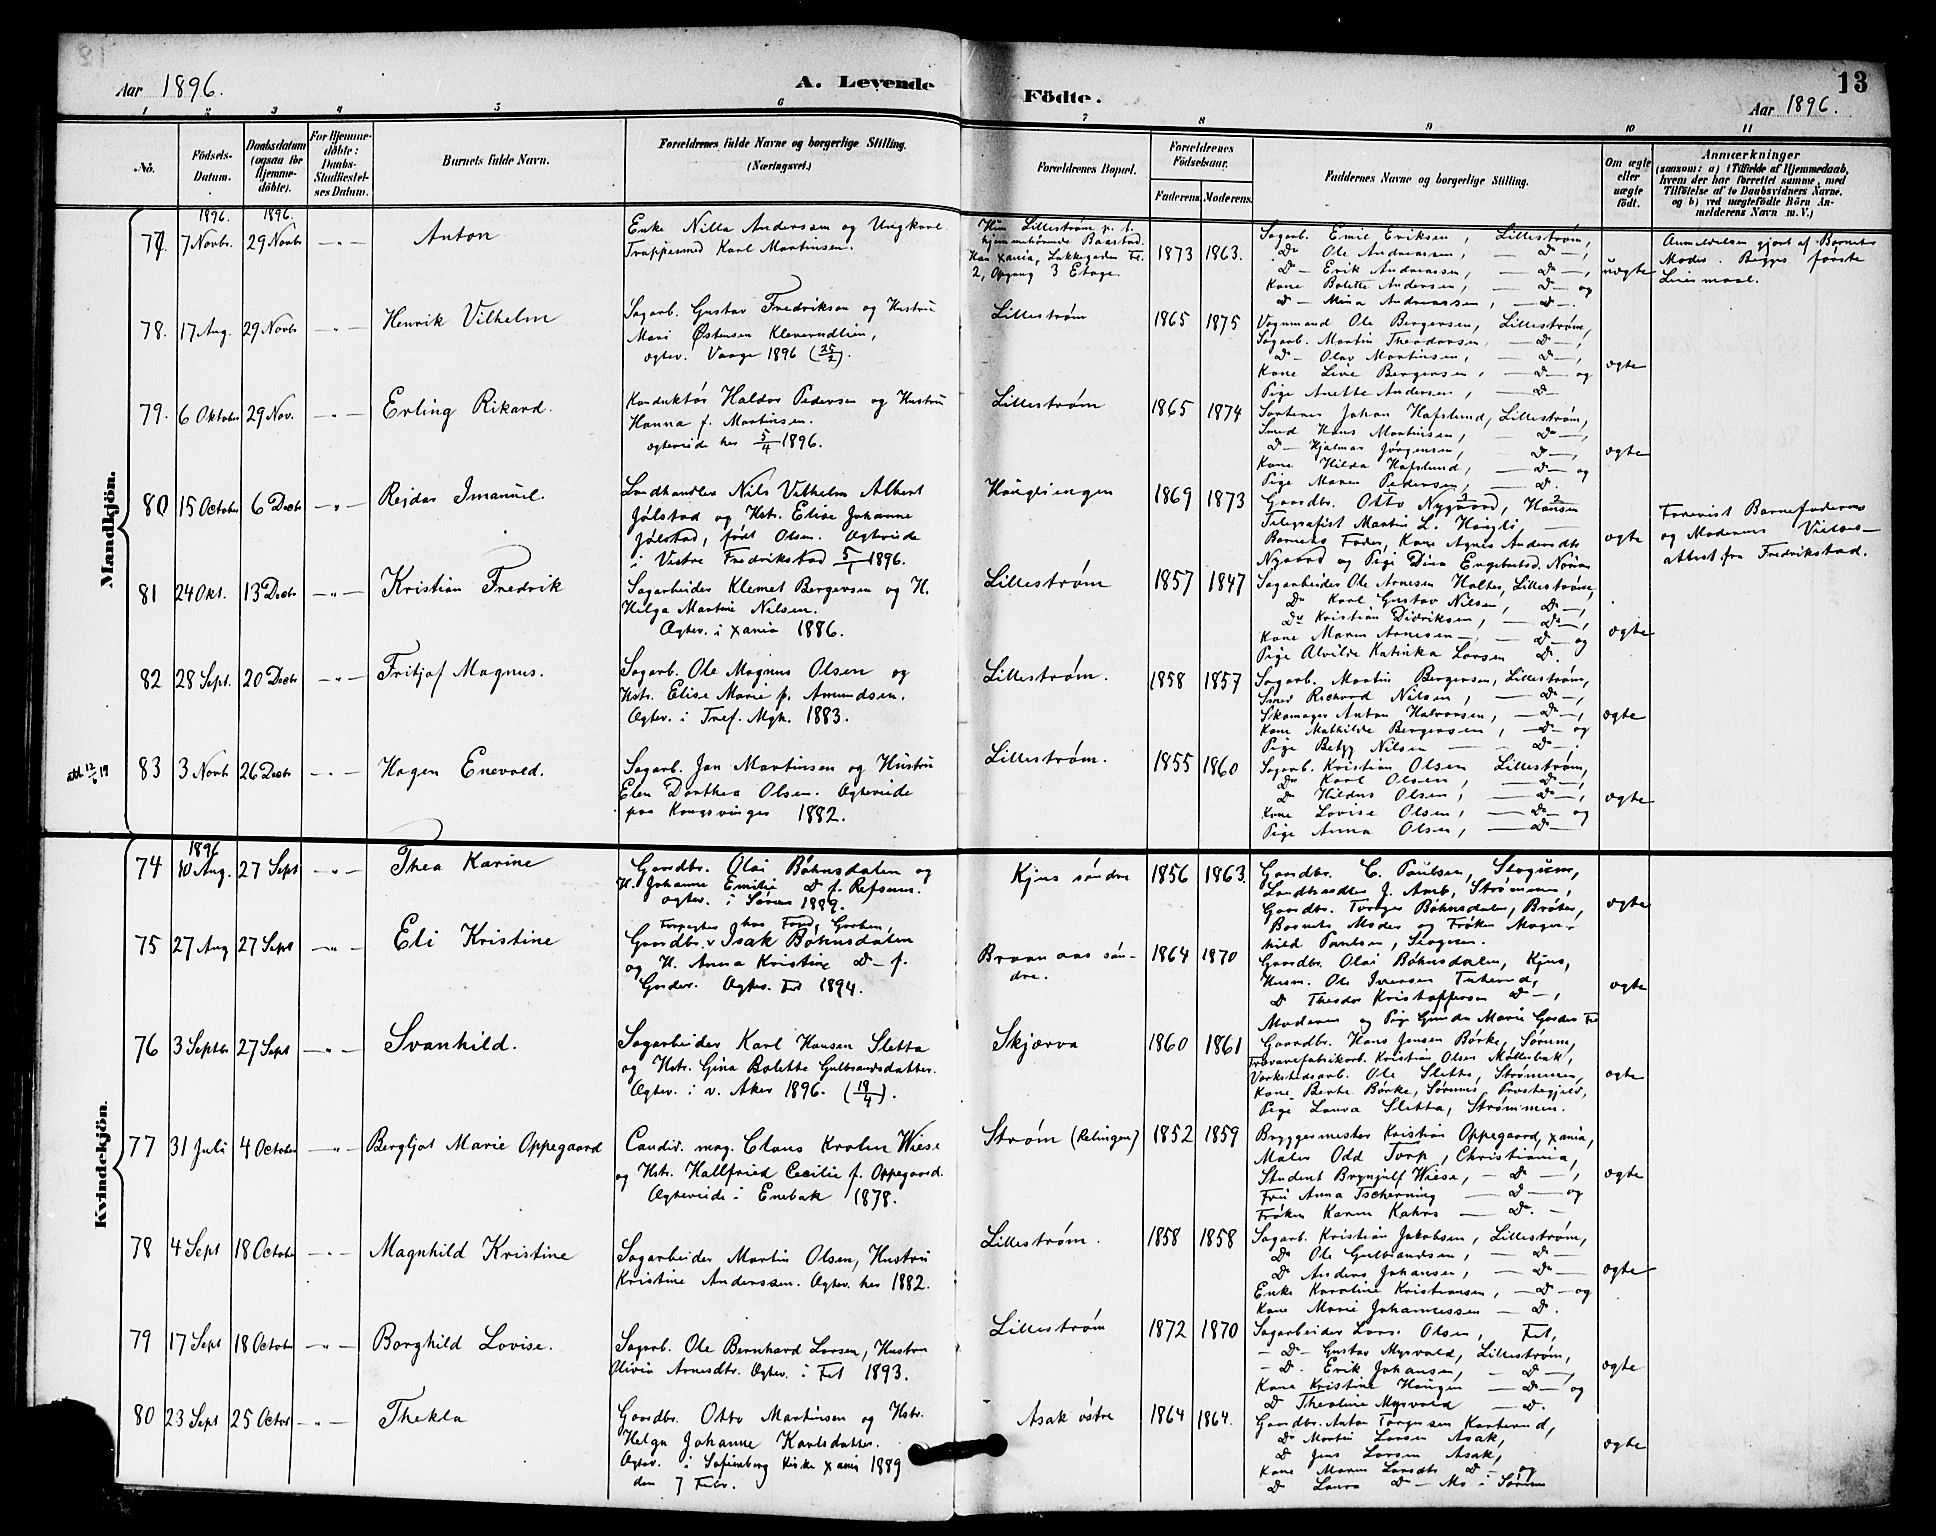 Aar 1896.
A. Levende
Födte.
13
Aar 1896.
1 2 3 4 5 6 7 8 9 10 11
No.
Födsels-Datum.
Daabsdatum (ogsaa for Hjemme-döbte).
For Hjemme-döbte: Daabs-Stadfæstel-ses Datum.
Barnets fulde Navn.
Forældrenes fulde Navne og borgerlige Stilling.
(Næringsvei.)
Forældrenes Bopæl.
Forældrenes Födselsaar.
Faderens Moderens
Faddernes Navne og borgerlige Stilling.
Om ægte eller uægte födt.
Anmærkninger
(saasom: a) i Tilfælde af Hjemmedaab, hvem der har forrettet samme, med Tilföielse af to Daabsvidners Navne, og b) ved uægtefödte Börn An-melderens Navn m. V.)
Mandkjön.
1896. 1896.
77 7 Novbr. 29 Novbr — " —
Anton
Enke Nilla Andersen og Ungkarl
Karl Martinsen.
Hun Lillestrøm p. t.
hjemmehørende Baastad.
Han Xania, Lakkegaden
2, Opgang 3 Etage.
1873 1863.
Sagarb. Emil Eriksen, Lillestrøm,
Do Ole Andreassen, — Do —,
D — Erik Andreassen, — Do —,
Kone Bolette Andersen, — D — og
D — Mina Andreassen, — D —.
uægte
Anmeldelsen gjort af Barnets
Moder. Begges første
Leiermaal.
78. 17 Aug. 29 Novbr — " —
Henrik Vilhelm
Sagarb. Gustav Fredriksen og Hustru
Mari Østensen Kleverudlien,
ægtev. Vaage 1896 (25/2).
Lillestrøm
1865 1875
Vognmand Ole Bergersen, Lillestrøm,
Sagarb. Martin Theodorsen, — D —,
D — Olav Martinsen, — D —,
Kone Live Bergersen, — D — og
Pige Anette Andersen, — D —
ægte
79. 6 Oktober 29 Nov. — " —
Erling Rikard.
Konduktør Haldor Pedersen og Hustru
Hanna f. Martinsen.
ægteviede her 5/4 1896.
Lillestrøm
1865 1874
Sorterer Johan Hafslund, Lillestrøm,
Smed Hans Martinsen, — Do —,
D — Hjalmar Jörgensen, — D —,
Kone Hilda Hafslund, — D — og
Pige Maren Pedersen, — D.
ægte
80 15 October 6 Decbr — " —
Rejdar Imanuel.
Landhandler Nils Vilhelm Albert
Jølstad og Hst. Elise Johanne
Jølstad, født Olsen. Ægteviede
i Vestre Fredrikstad 5/1 1896.
1869 1873
Gaardbr. Otto Nygaard, Hansen
Telegrafist Martin L. Haugli, —
Barnets Fader, Kone Agnes Andersdtr
Nygaard og Pige Dina
ægte
Forevist Barnefaderens
og Moderens Vielses-
attest fra Fredrikstad.
81 24 Okt. 13 Decbr — " —
Kristian Fredrik
Sagarbeider Klemet Bergersen og H.
Helga Martine Nilsen.
Ægtev. i Xania 1886.
Lillestrøm
1857 1847
Sagarbeider Ole Arnesen Holter, Lillestrøm,
Do Karl Gustav Nilsen, D —,
Do Kristian Didriksen, — Do —,
Kone Maren Arnesen —, — D — og
Pige Alvilde Katinka Larsen D.
ægte
82 28 Sept. 20 Decbr — " —
Fritjof Magnus.
Sagarb. Ole Magnus Olsen og
Hstr. Elise Marie f. Amundsen.
Ægtev. i Tref. Mgh. 1883.
Lillestrøm.
1858 1857
Sagarb. Martin Bergersen, Lillestrøm,
Smed Richard Nilsen, — Do —,
Skomager Anton Halvorsen, — Do —,
Kone Mathilde Bergersen, — D — og
Pige Betzy Nilsen — D —.
ægte
83 3 Novbr 26 Decbr — " —
Hagen Enevald.
Sagarb. Jan Martinsen og Hustru
Elen Dorthea Olsen. Ægteviede
paa Kongsvinger 1882.
Lillestrøm.
1855 1860
Sagarb. Kristian Olsen Lillestrøm,
Do Karl Olsen, — Do —,
D Hildus Olsen, — D —,
Kone Lovise Olsen, — Do — og
Pige Anna Olsen, — D —
ægte
Kvindekjön.
1896
74 10 Aug. 27 Sept — " —
Thea Karine
Gaardbr. Olai Bøhnsdalen og
H. Johanne Emilie D f. Refsum.
ægtev. i Sørum 1889.
Kjus søndre
1856 1863.
Gaardbr. C. Paulsen, Skogum,
Landhandler J. Aamb, Strømmen,
Gaardbr. Torger Bøhnsdalen, Bråter,
Barnets Moder og Frøken Magn-
hild Paulsen, Skogum.
ægte
75 27 Aug 27 Sept — " —
Eli Kristine
Gaardbr. Isak Bøhnsdalen
og H. Anna Kristine D — f.
Garder. Ægtev. Fet 1894.
Braanaas søn-
dre.
1864 1870
Gaardbr. Olai Bøhnsdalen, Kjus,
Husm. Ole Iversen Tuterud,
D Theodor Kristoffersen D —,
Moderen og Pige Gunda Marie Garder Fet
ægte
76 3 Septbr 27 Sept — " —
Svanhild.
Sagarbeider Karl Hansen Sletta
og Hstr. Gina Bolette Gulbrandsdatter.
Ægtev. i v. Aker 1896. (19/4).
Skjærva
1860 1861
Gaardbr. Hans Jensen Børke, Sørum,
Trævarefabrikarb. Kristian Olsen Møllerbak,
Værkstedsarb. Ole Sletta, Strømmen,
Kone Berte Børke, Sørums Præstegjeld,
Pige Laura Sletta, Strømmen.
ægte
77 31 Juli 4 October — " —
Bergljot Marie Oppegaard
Candid. mag. Claus Krohn Wiese
og Hstr. Hallfried Cecilie f. Oppegaard.
Ægteviede i Enebak 1878.
Strøm (Relingen)
1852 1859
Bryggermester Kristian Oppegaard, Xania,
Maler Odd Torp, Christiania,
Student Brynjulf Wiese, — D —,
Fru Anna Tscherning — D — og
Frøken Karen Kahrs — D. —
ægte
78 4 Sept 18 October — " —
Magnhild Kristine
Sagarbeider Martin Olsen, Hustru
Kristine Anderssen. Ægtev. her 1882.
Lillestrøm.
1858 1858
Sagarb. Kristian Jakobsen, Lillestrøm,
Do Ole Gulbrandsen, — D —
D Anders Johansen, — Do —
Enke Karoline Kristiansen, — D — og
Kone Marie Johannessen — D.
ægte
79 17 Sept 18 October — " —
Borghild Lovise.
Sagarb. Ole Bernhard Larsen, Hustru
Olivia Arnesdtr. Ægtev. i Fet 1893.
Lillestrøm
1872 1870
Sagarbeider Lars Olsen, Fet,
— D — Gustav Myrvold, Lillestrøm,
— D. Erik Johansen, — D —,
Kone Kristine Haugen — D — og
D Theoline Myrvold — D.
ægte
80 23 Sept 25 Octbr — " —
Thekla
Gaardbr. Otto Martinsen og Hstr.
Helga Johanne Karlsdatter.
Ægtev. i Sofienberg Kirke Xania 1889
den 7 Febr.
Asak østre
1864 1864.
Gaardbr. Anton Torgersen Karterud,
Do Martin Larsen Asak,
D Jens Larsen Asak,
Kone Maren Larsdtr D — og
D Laura D — Mo i Sørum
ægte